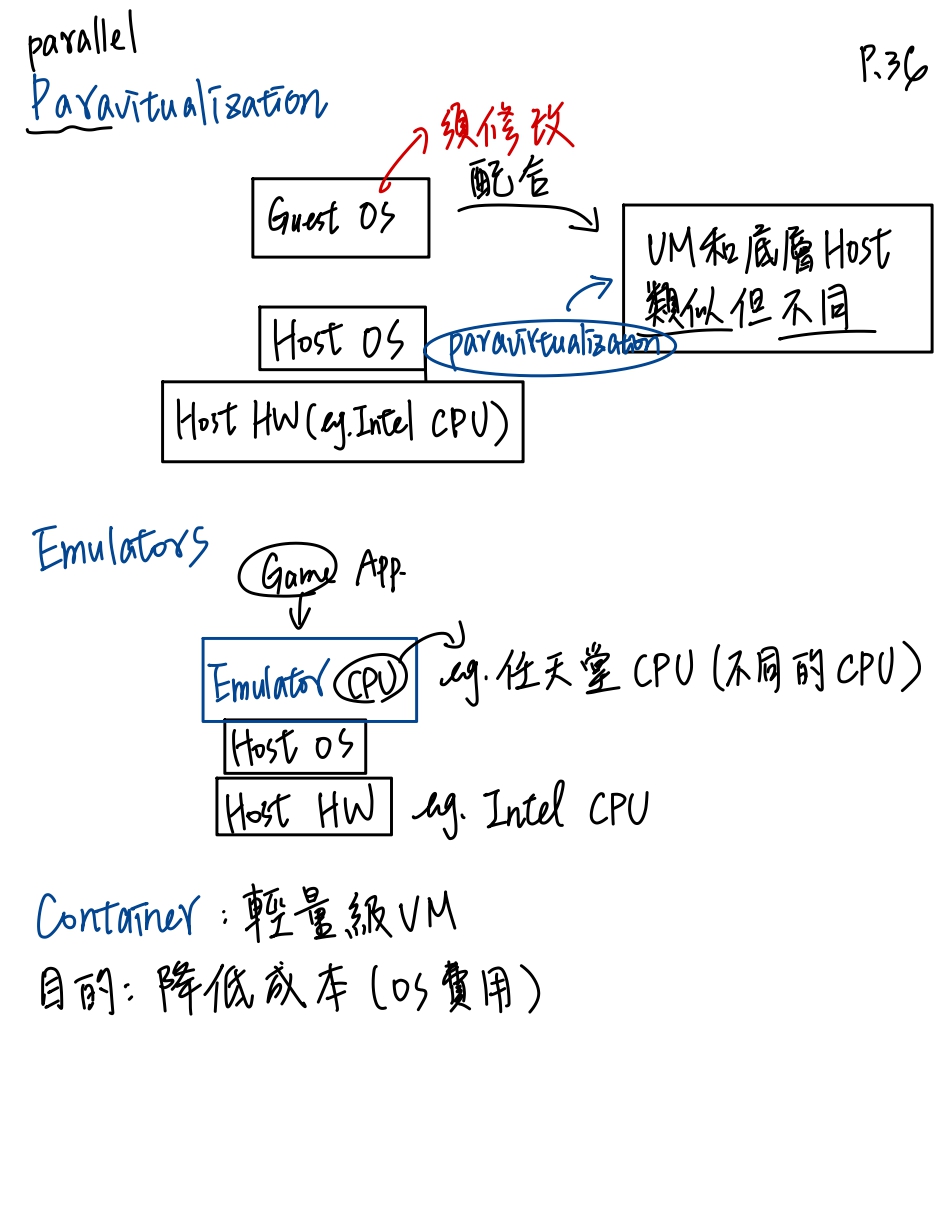 parallel
P.36
Paravitualization
須修改
配合
Guest OS
VM和底層Host
類似但不同
Host OS
paravirtualization
Host HW(eg.Intel CPU)
Emulators
Game App.
Emulator CPU
eg.任天堂CPU(不同的CPU)
Host OS
Host HW eg. Intel CPU
Container:輕量級VM
目的:降低成本(OS費用)